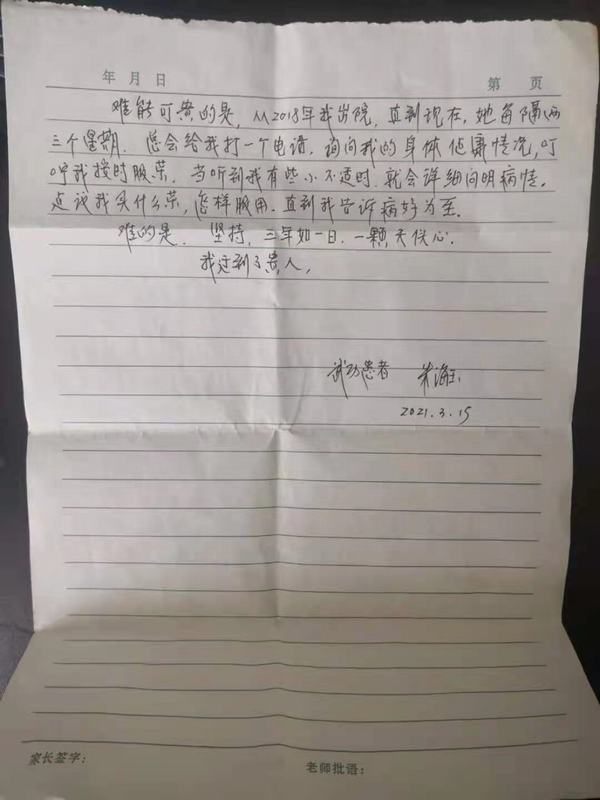 年 月 日 第 页
难能可贵的是, 从2018年我出院, 直到现在, 她每隔两
三个星期. 总会给我打一个电话, 询问我的身体健康情况, 叮
咛我按时服药. 当听到我有些小不适时. 就会详细问明病情.
建议我买什么药, 怎样服用. 直到我告诉病好为至.
难的是. 坚持, 三年如一日. 一颗天使心.
我遇到了贵人,
武功患者
2021.3.15
家长签字: 老师批语: